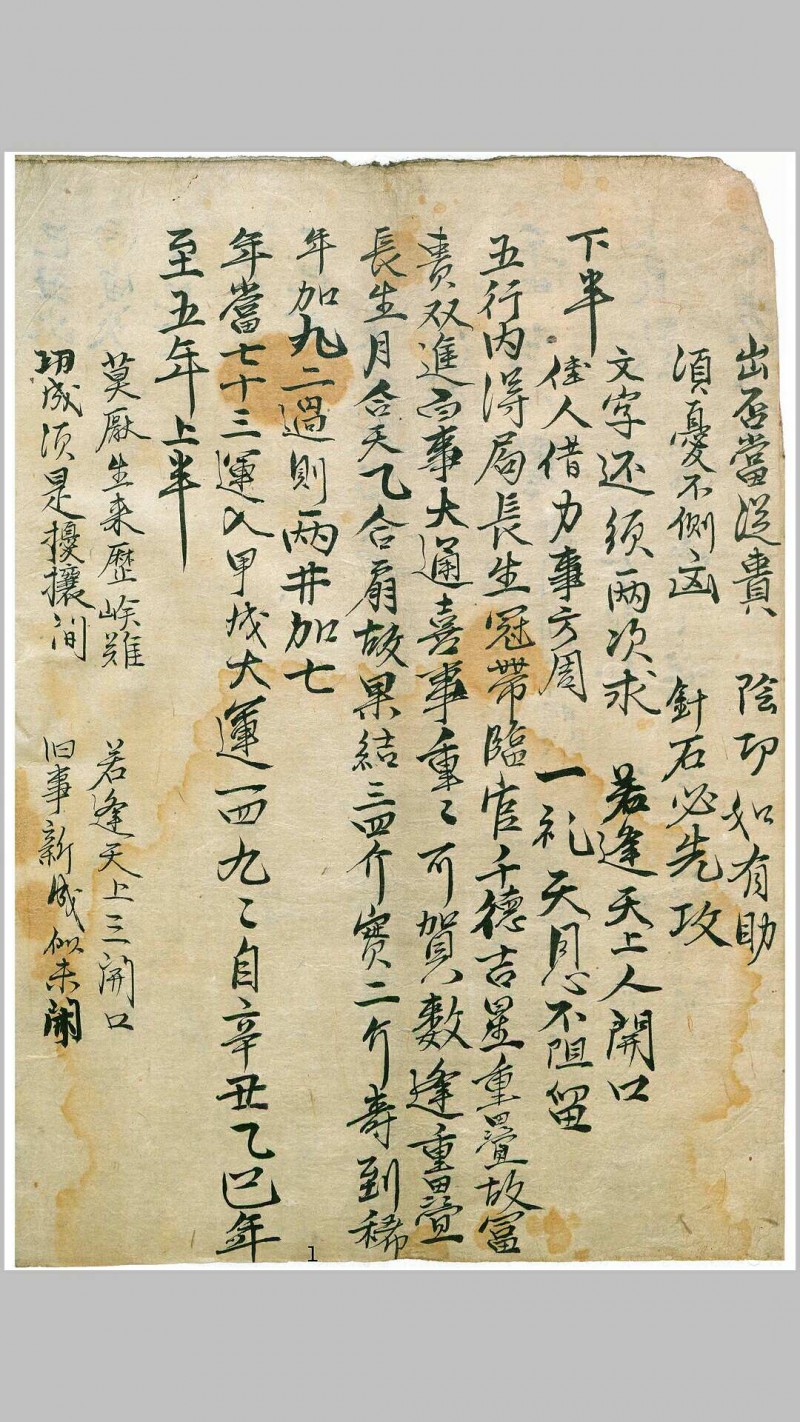 出否當從貴 陰功如有助
須憂不側凶 針石必先攻
文字还须兩次求 若逢天上人開口
下半
佳人借力事方周 一礼天恩不阻留
五行内得局長生冠帶臨官千德吉星重疊故富
貴双進百事大通喜事重〻可賀數逢重疊
長生月合天乙合扇故果結三四介寶二介壽到稀
年加九二過則兩井加七
年當七十三運入甲戌大運一四九〻自辛丑乙巳年
至五年上半
莫厭生来歷崄難 若逢天上三開口
功成须是擾攘間 旧事新成似未開
1